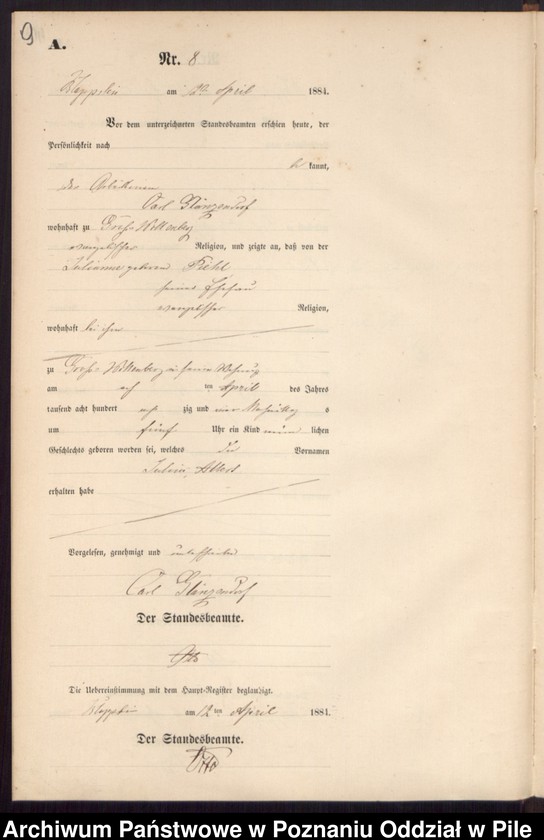 9
A.
Nr. 8
am April 1884.
Vor dem unterzeichneten Standesbeamten erschien heute, der
Persönlichkeit nach
kannt,
der
Carl Glänzendorf
wohnhaft zu Groß Wittenberg
Religion, und zeigte an, daß von der
geborenen
seiner Ehefrau
Religion,
wohnhaft bei ihm
zu Groß Wittenberg in seiner Wohnung
am ten April des Jahres
tausend acht hundert acht zig und vier Nachmittag s
um fünf Uhr ein Kind männ lichen
Geschlechts geboren worden sei, welches die Vornamen
erhalten habe
Vorgelesen, genehmigt und unterschrieben
Carl Glänzendorf
Der Standesbeamte.
Otto
Die Uebereinstimmung mit dem Haupt-Register beglaubigt.
am 12 ten April 1884.
Der Standesbeamte.
Otto
Archiwum Państwowe w Poznaniu Oddział w Pile